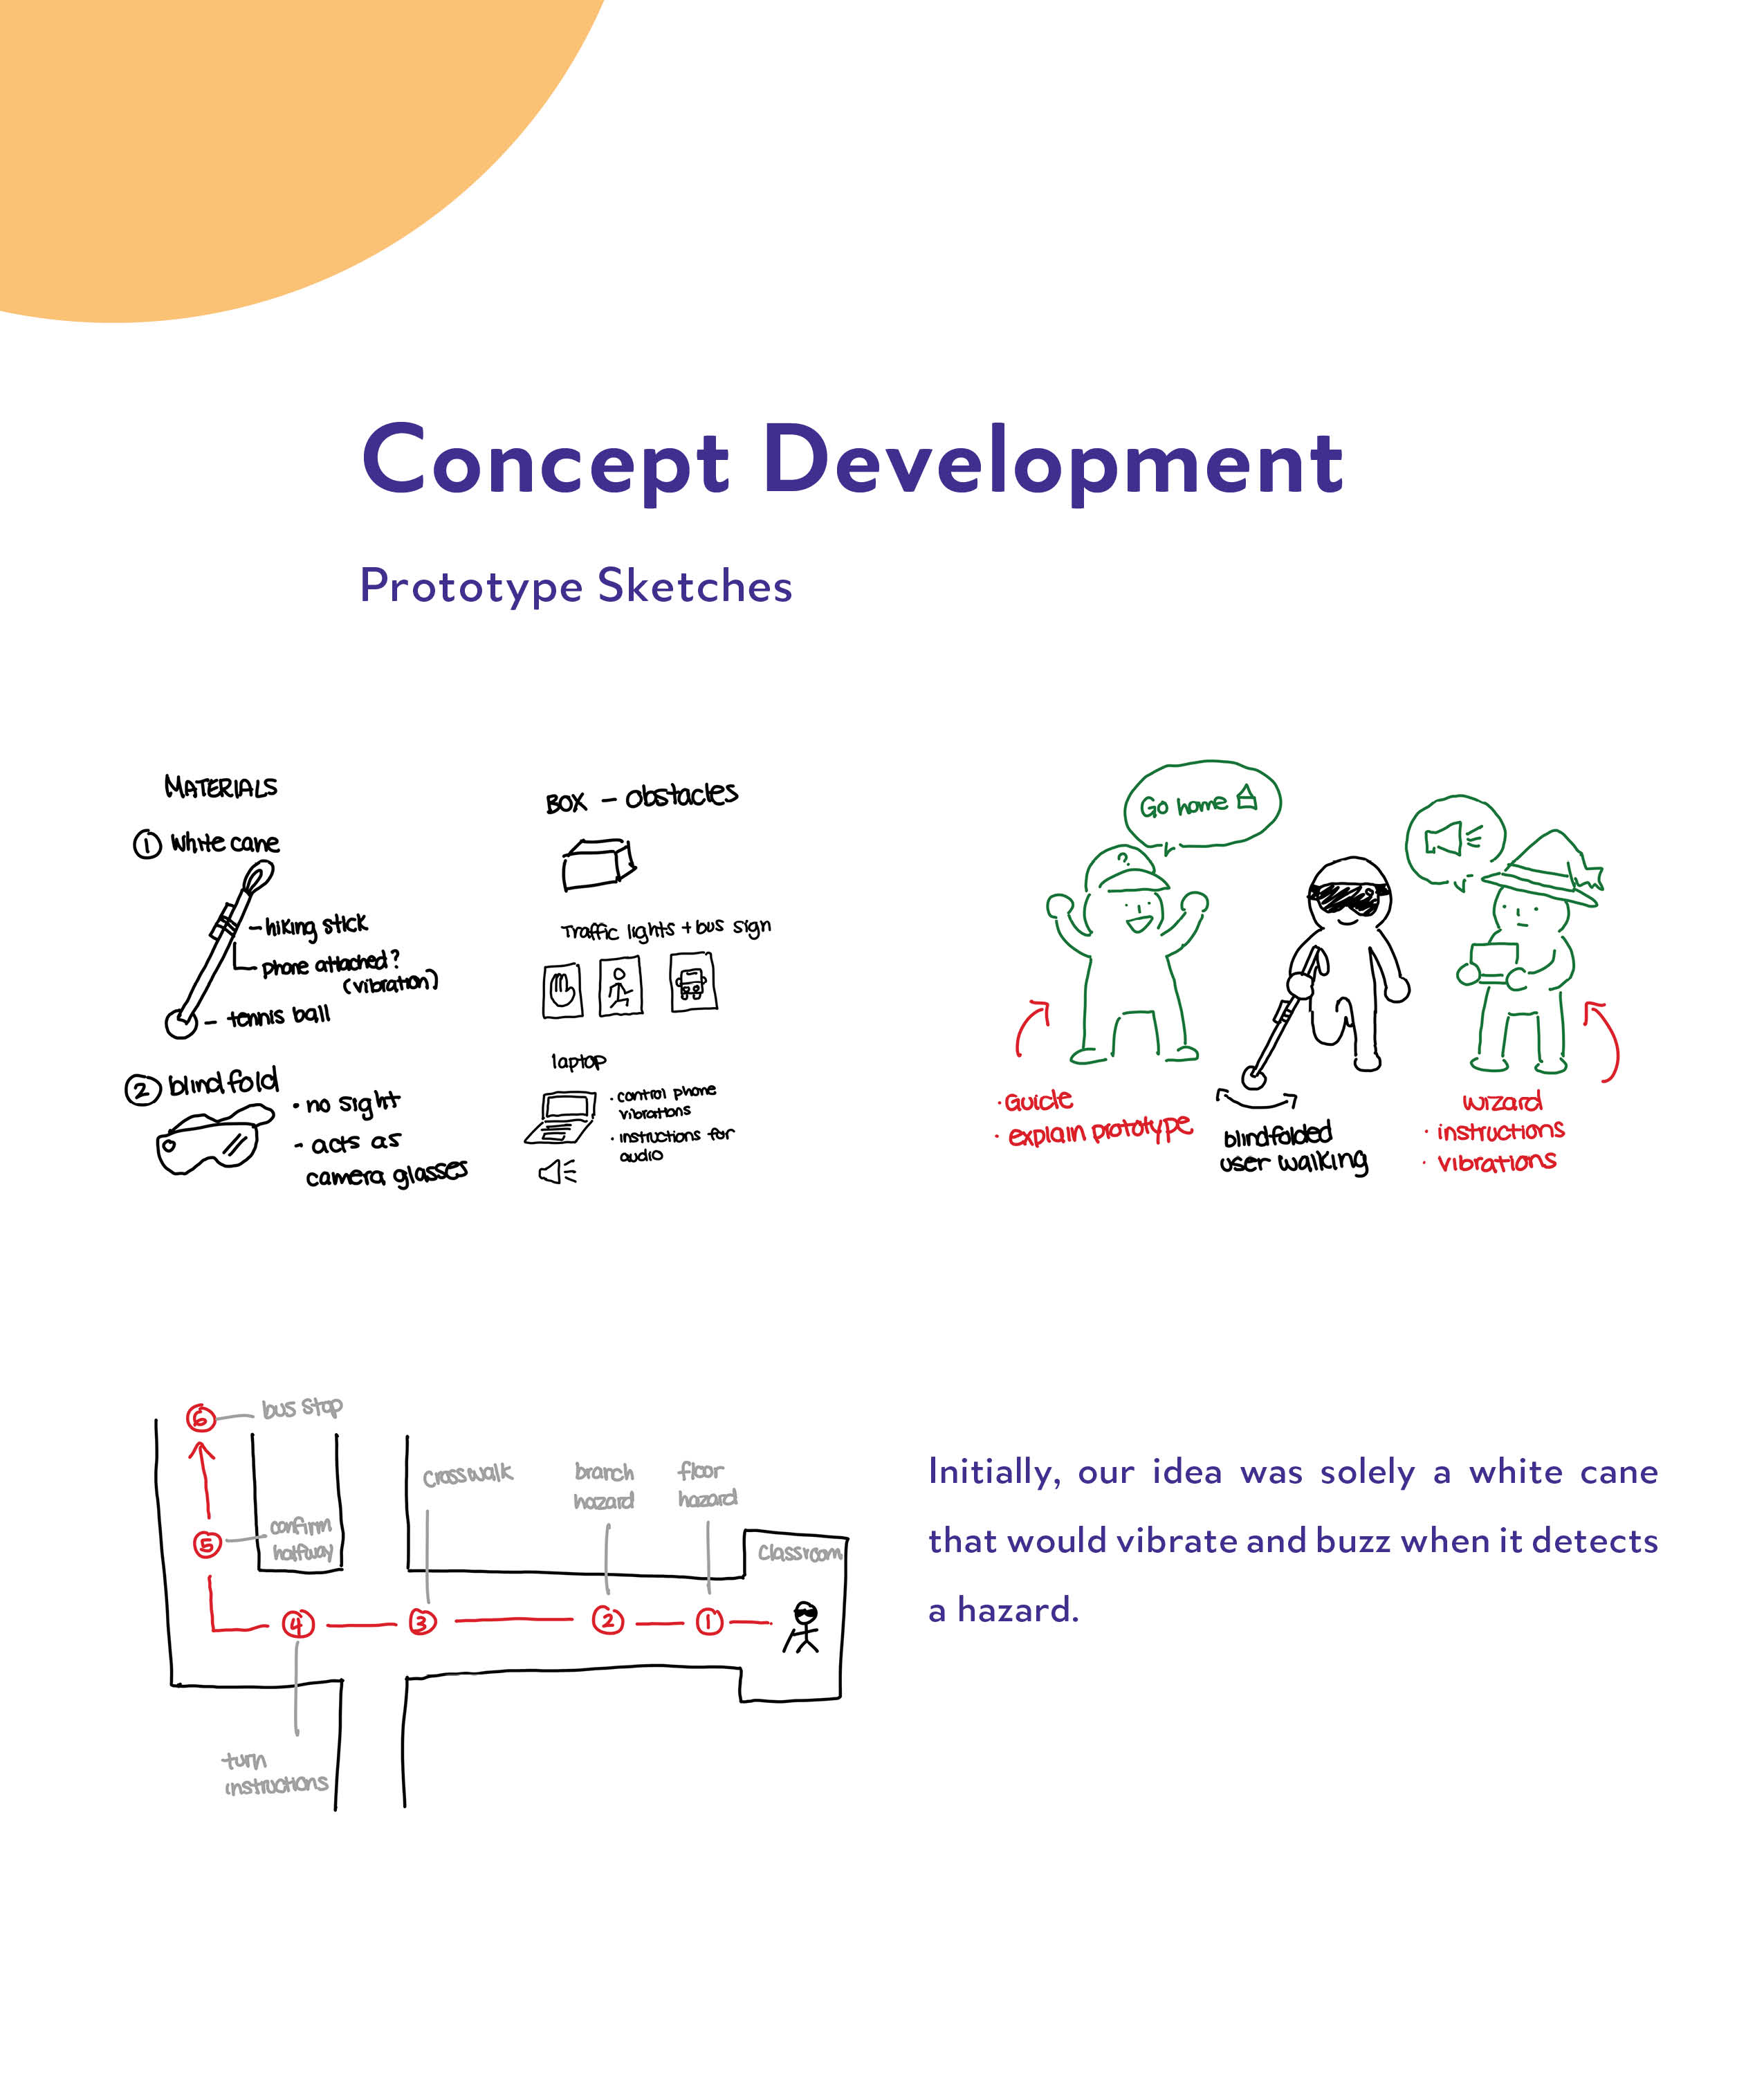 Concept Development
Prototype Sketches
MATERIALS
① White cane
- hiking stick
phone attached?
(vibration)
- tennis ball
② blindfold
· no sight
- acts as
camera glasses
BOX - obstacles
Traffic lights + bus sign
laptop
· control phone
vibrations
· instructions for
audio
?
Go home
· Guide
· explain prototype
blindfolded
user walking
wizard
· instructions
· vibrations
6
bus stop
5
confirm
halfway
crosswalk
branch
hazard
floor
hazard
classroom
4
3
2
1
turn
instructions
Initially, our idea was solely a white cane
that would vibrate and buzz when it detects
a hazard.